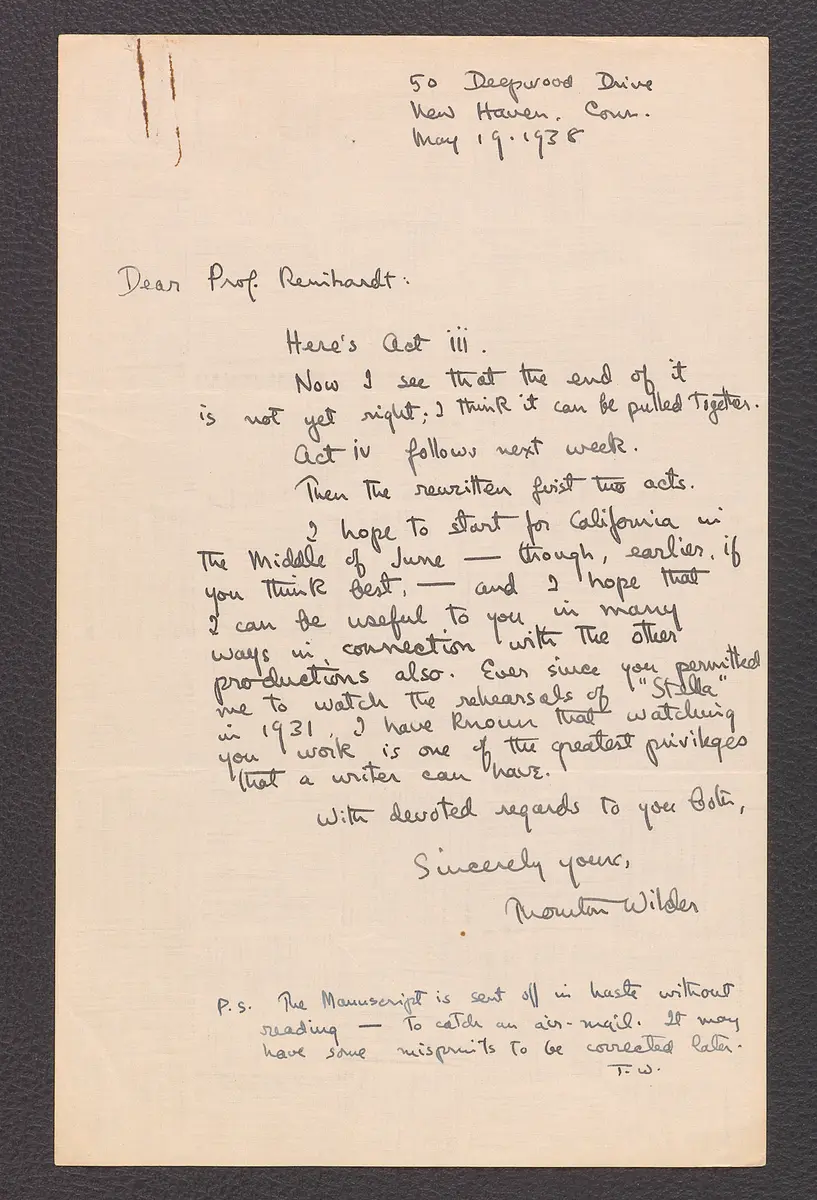 50 Deepwood Drive
New Haven. Conn.
May 19. 1938
Dear Prof. Reinhardt:
Here's Act iii.
Now I see that the end of it
is not yet right; I think it can be pulled together.
Act iv follows next week.
Then the rewritten first two acts.
I hope to start for California in
the Middle of June — though, earlier, if
you think best, — and I hope that
I can be useful to you in many
ways in connection with the other
productions also. Ever since you permitted
me to watch the rehearsals of "Stella"
in 1931, I have known that watching
you work is one of the greatest privileges
that a writer can have.
With devoted regards to you both,
Sincerely yours,
Thornton Wilder
P.S. The Manuscript is sent off in haste without
reading — to catch an air-mail. It may
have some misprints to be corrected later.
T.W.